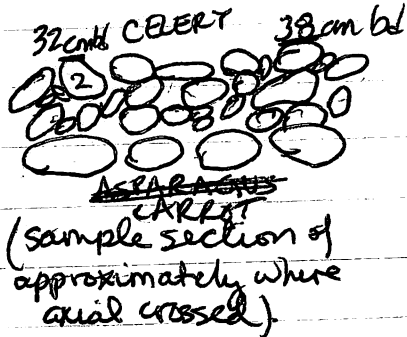 32cmbd CELERY 38cm bd
2
ASPARAGUS
CARROT
(sample section of
approximately where
axial crossed).